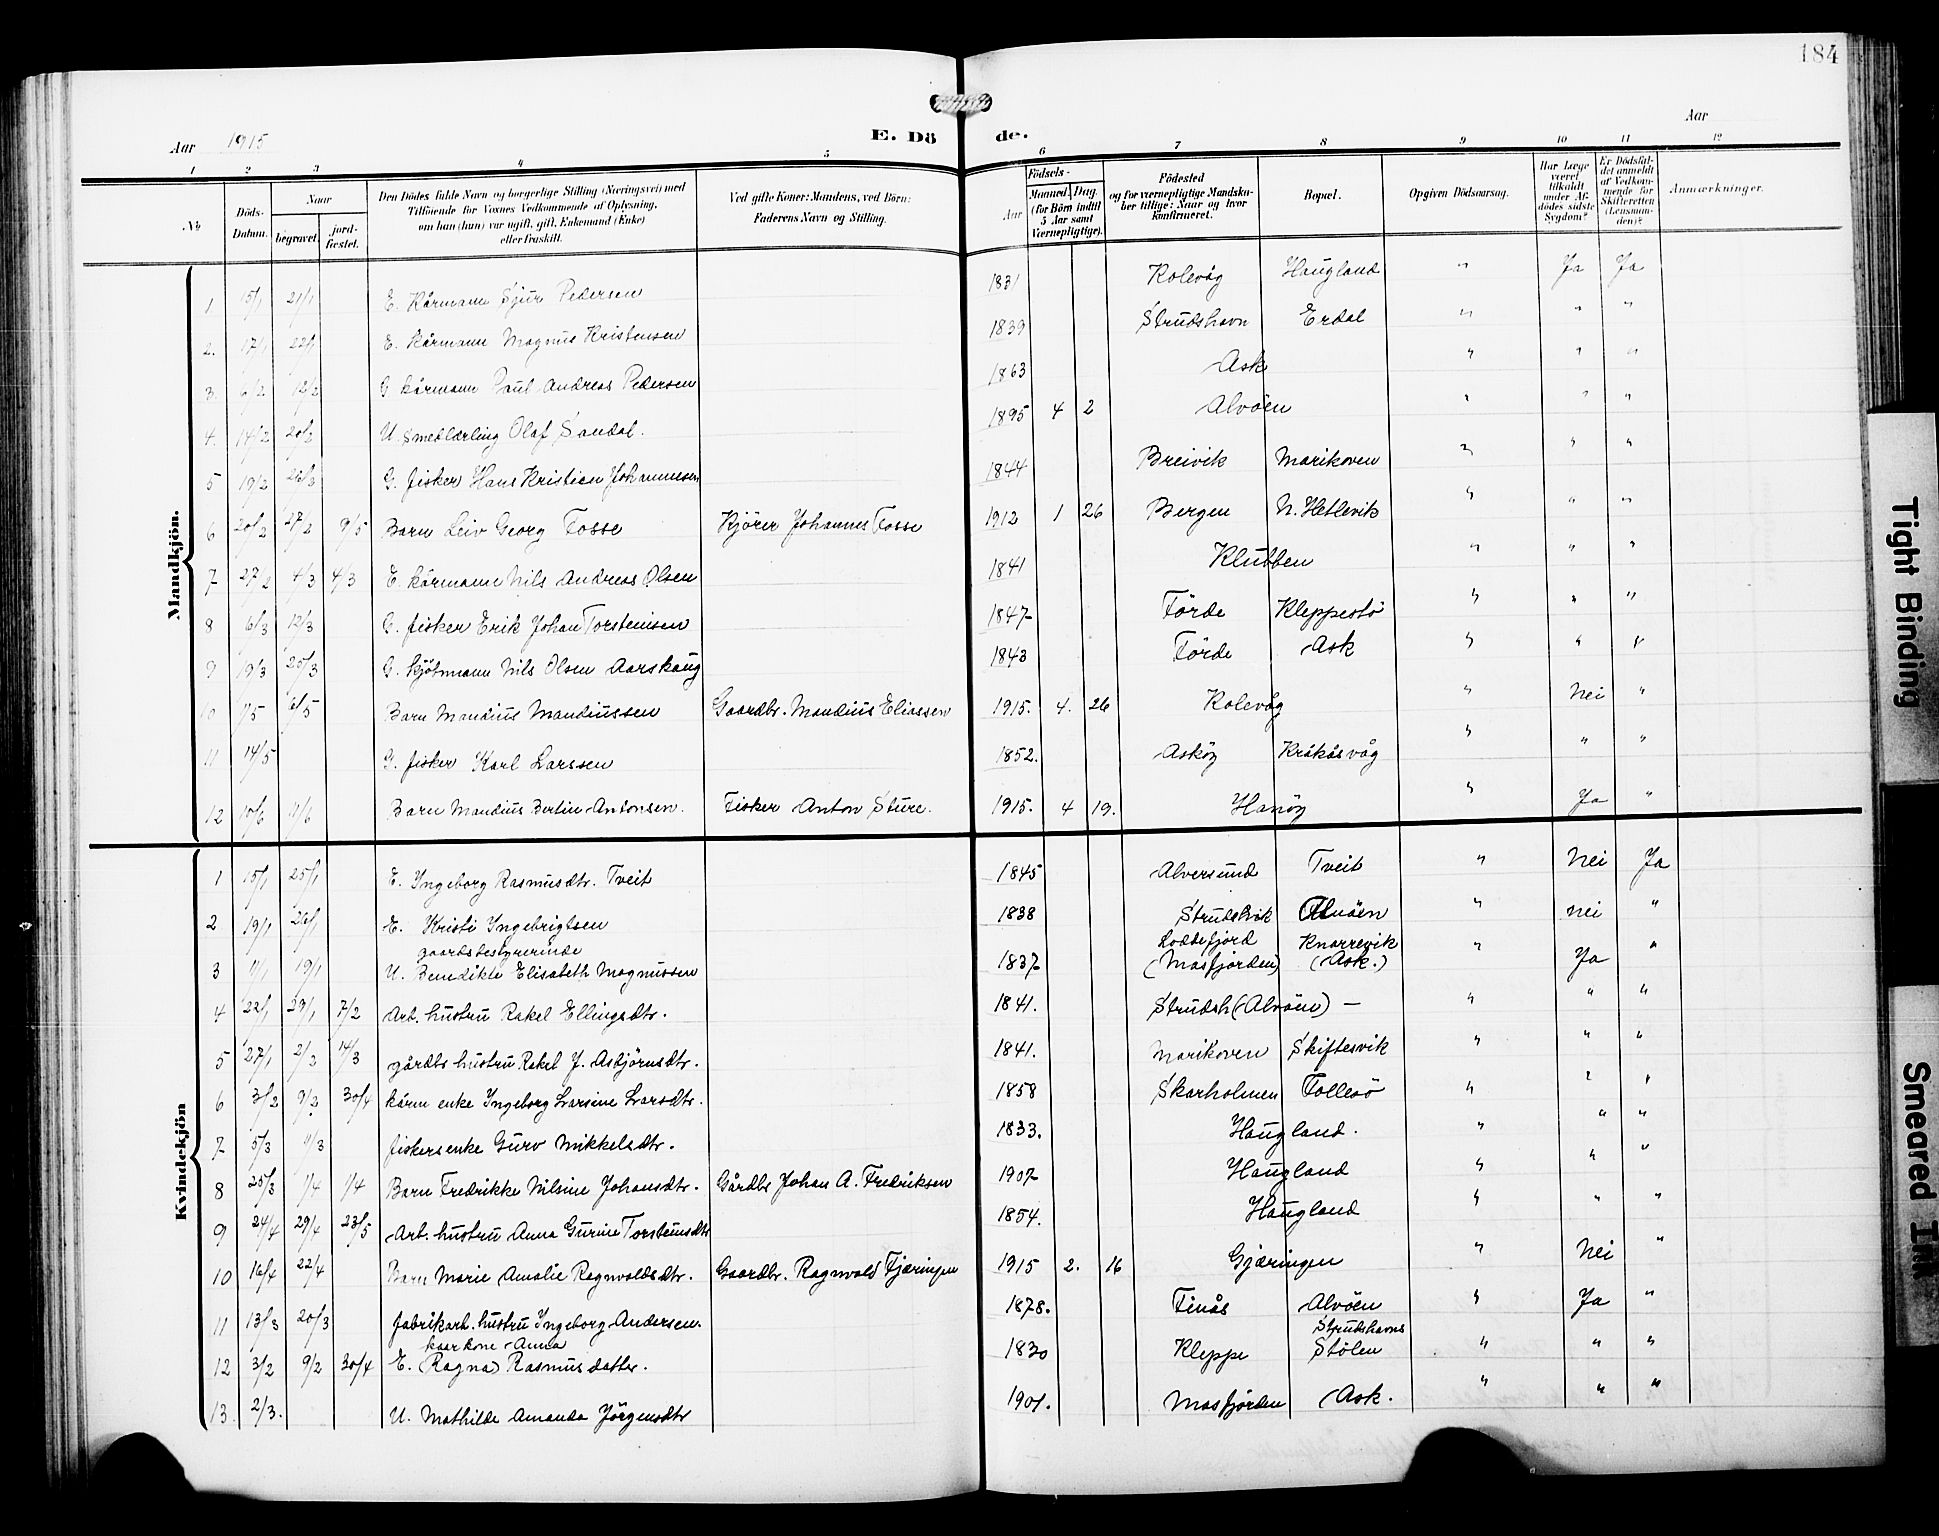 184
Aar 1915
E. Dö de.
Aar
1 2 3 4 5 6 7 8 9 10 11 12
No
Döds-Datum.
Naar
begravet.
jordfæstet.
Den Dödes fulde Navn og borgerlige Stilling (Næringsvei) med
Tilföiende for Voxnes Vedkommende af Oplysning,
om han (hun) var ugift, gift, Enkemand (Enke)
eller fraskilt.
Ved gifte Koner: Mandens, ved Börn:
Faderens Navn og Stilling.
Födsels-
Aar
Maaned. Dag.
(for Börn indtil
5 Aar samt
Værnepligtige).
Födested
og for værnepligtige Mandska-
ber tillige: Naar og hvor
konfirmeret.
Bopæl.
Opgiven Dödsaarsag.
Har Læge
været
tilkaldt
under Af-
dödes sidste
Sygdom?
Er Dödsfal-
det anmeldt
af Vedkom-
mende for
Skifteretten
(Lensman-
den)?
Anmærkninger.
Mandkjön.
1 15/1 21/1 E. Kårmann Sjur Pedersen 1831 Kolevåg Haugland " Ja Ja
2. 17/1 22/1 E. kårmann Magnus Kristensen 1839 Strudshavn Erdal " " "
3. 6/2 12/2 G kårmann Paul Andreas Pedersen 1863 Ask " " "
4. 14/2 20/2 U. Smedlærling Olaf Sandal. 1895 4 2 Alvöen " " "
5 19/2 26/2 G. fisker Hans Kristian Johannesen 1844 Breivik Marikoven " " "
6 20/2 27/2 9/5 Barn Leiv Georg Fosse Kjörer Johannes Fosse 1912 1 26 Bergen N. Hetlevik " " "
7 27/2 4/3 4/3 E. kårmann Nils Andreas Olsen 1841 Klubben " " "
8 6/3 12/3 G. fisker Erik Johan Torsteinsen 1847 Förde Kleppestö " " "
9 19/3 25/3 G. kjötmann Nils Olsen Aarskaug 1843 Förde Ask " " "
10 1/5 6/5 Barn Mandius Mandiussen Gaardbr. Mandius Eliassen 1915. 4. 26 Kolevåg " Nei "
11 14/5 G. fisker Karl Larssen 1852. Asköy Kråkåsvåg " " "
12 10/6 11/6 Barn Mandius Bertin Antonsen. Fisker Anton Sture. 1915. 4 19. Hanöy " Ja "
Kvindekjön
1 15/1 25/1 E. Ingeborg Rasmusdtr. Tveit 1845 Alversund Tveit " Nei Ja
2 19/1 26/1 E. Kristi Ingebrigtsen 1838 Strudshvik Alvöen " nei "
gaardsbestyrerinde Loddefjord Knarrevik
3 11/1 19/1 U. Benedikte Elisabeth Magnussen 1837 (Masfjorden) (Ask.) " Ja "
4 22/1 29/1 7/2 Arb. hustru Rakel Ellingsdtr. 1841. Strudsh (Alvöen) — " " "
5 27/1 2/3 14/3 gårdbr hustru Rakel J. Asbjörnsdtr. 1841. Marikoven Skiftesvik " " "
6 3/2 9/2 30/4 kårm enke Ingeborg Larsine Larsdtr. 1858 Skarholmen Follesö " " "
7 5/3 11/3 fiskersenke Guro Mikkelsdtr. 1833. Haugland. " " "
8 25/3 1/4 1/4 Barn Fredrikke Nilsine Johansdtr. Gårdbr Johan A. Fredriksen 1907 Haugland " " "
9 24/4 29/4 23/5 Arb. hustru Anna Gurine Torsteinsdtr 1854. Haugland " " "
10 16/4 22/4 Barn Marie Amalie Ragnvaldsdtr. Gaardbr. Ragnvald Fjæringen 1915 2. 16 Gjæringen " Nei "
11 13/3 20/3 fabrikarb. hustru Ingeborg Andersen. 1878. Finås Alvöen " Ja "
kaarkone Anna Strudshavns
12 3/2 9/2 30/4 E. (Ragna) Rasmusdatter. 1830 Kleppe Stölen " " "
13. 2/3. U. Mathilde Amanda Jörgensdtr 1901. Masfjorden Ask. " " "
Tight Binding
Smeared Ink